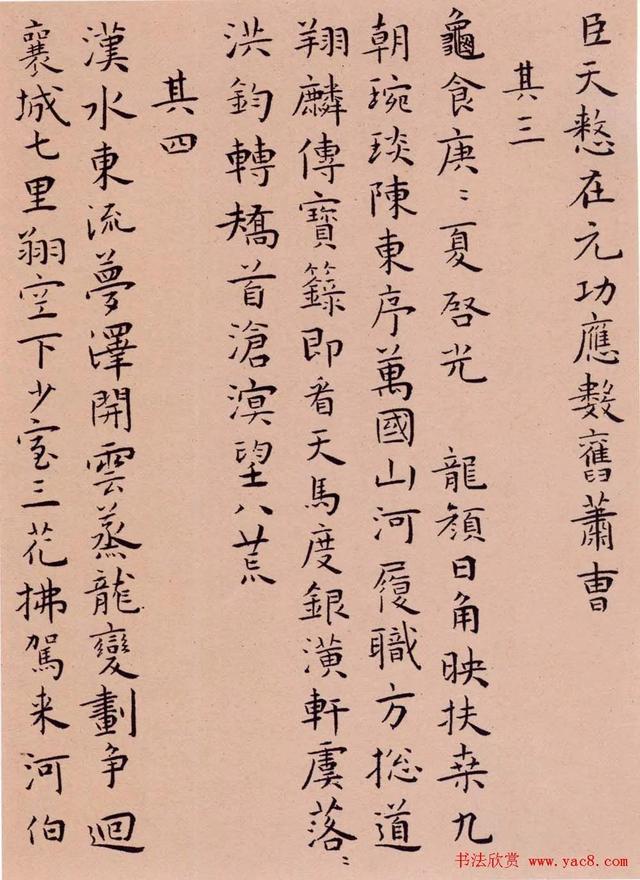 臣天憗在元功應數舊蕭曹
其三
龜食庚〻夏啓光　龍顏日角映扶桒九
朝琬琰陳東序萬國山河履職方揔道
翔麟傳寶籙即看天馬度銀潢軒虞落〻
洪鈞轉矯首滄溟望八荒
其四
漢水東流夢澤開雲蒸龍變劃爭迴
襄城七里翔空下少室三花拂駕来河伯
书法欣赏 www.yac8.com